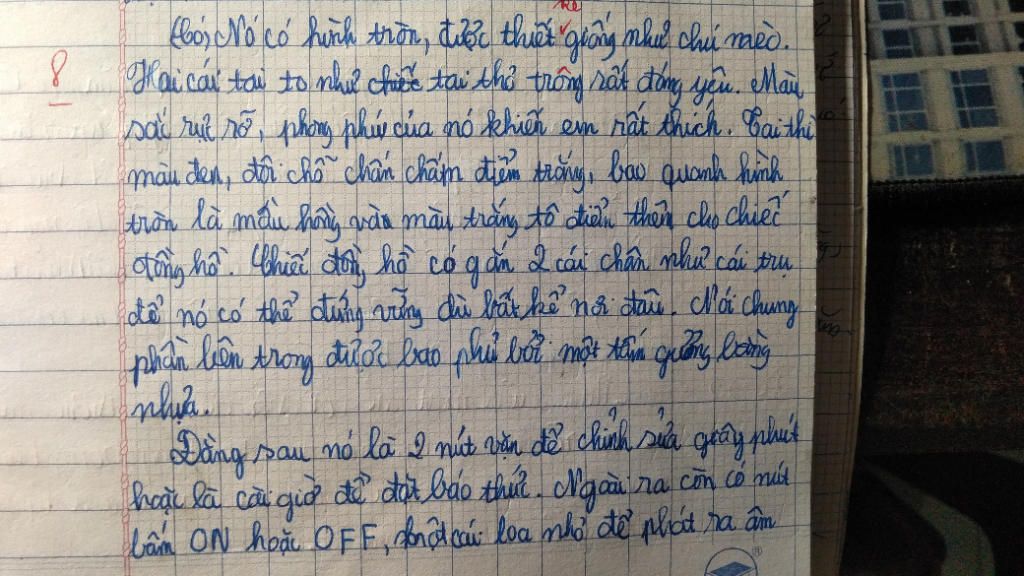 kế
(Có) Nó có hình tròn, được thiết giống như chú mèo.
8
Hai cái tai to như chiếc tai thỏ trông rất đáng yêu. Màu
sắc rực rỡ, phong phú của nó khiến em rất thích.
màu đen, đôi chỗ chấn chấm điểm trắng, bao quanh hình
tròn là mầu hồng vàn màu trắng tô điển thên cho chiếc
đồng hồ. Chiếc đồng hồ có gắn 2 cái chân như cái trụ
để nó có thể đứng vững dù bất kể nơi đâu. Nói chung
phần bên trong được bao phủ bởi một tấm gương bằng
nhựa.
Đằng sau nó là 2 nút vặn để chỉnh sửa giây phút
hoặc là cài giờ để đặt báo thức. Ngoài ra còn có nút
bấm ON hoặc OFF, một cái loa nhỏ để phát ra âm